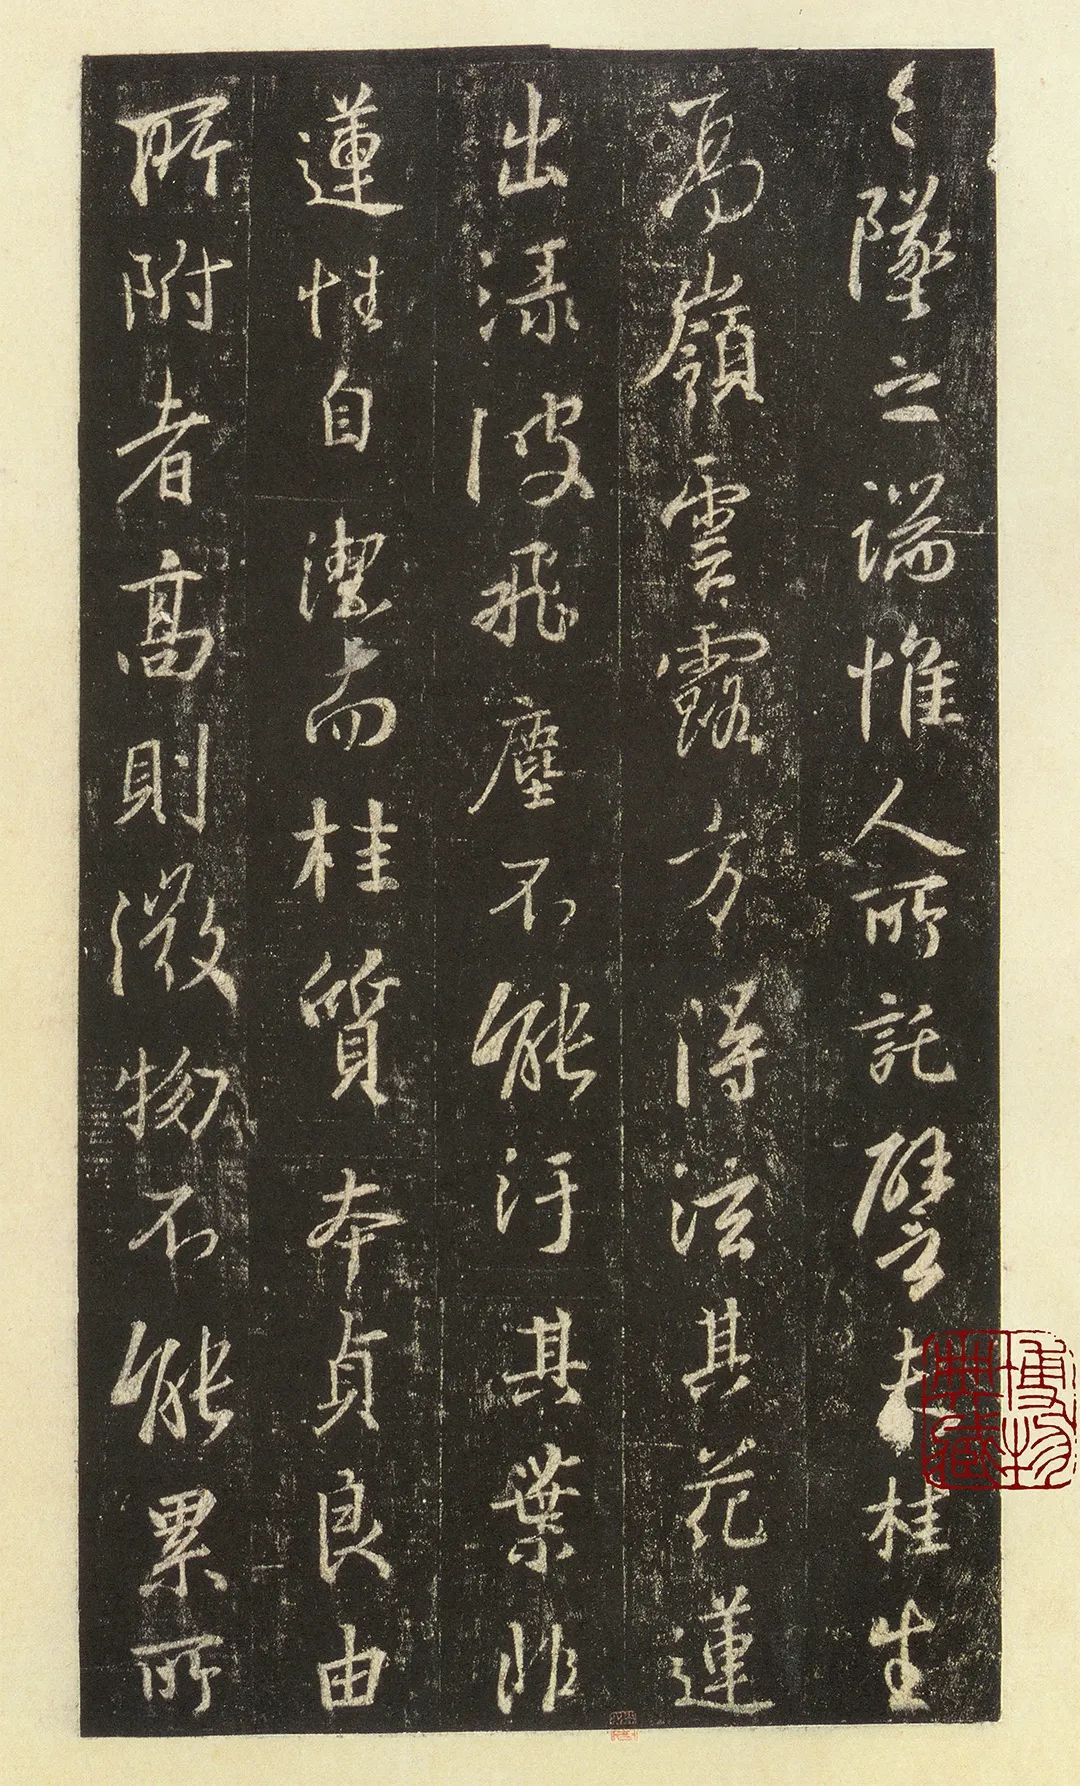 々墜之端惟人所託譬夫桂生
高嶺雲露方得泫其花蓮
出淥波飛塵不能汙其葉非
蓮性自潔而桂質本貞良由
所附者高則微物不能累所
博物典藏